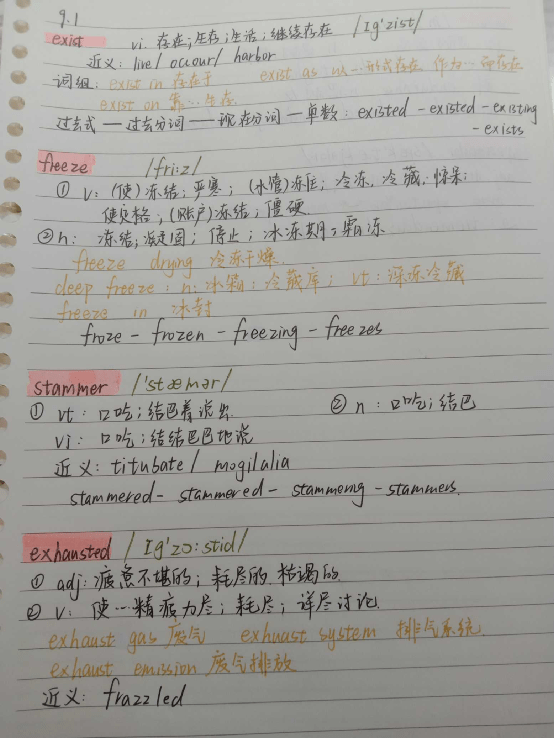 9.1
exist vi. 存在;生存;生活;继续存在 /Ig'zist/
近义: live/ occour/ harbor
词组: exist in 存在于 exist as 以…形式存在 作为…而存在
exist on 靠…生存
过去式 — 过去分词 — 现在分词 — 单数: existed - existed - existing
- exists
freeze /fri:z/
① v: (使)冻结; 严寒; (水管)冻住; 冷冻, 冷藏; 惊呆;
使定格; (账户)冻结; 僵硬
② n: 冻结; 凝固; 停止; 冰冻期; 霜冻
freeze drying 冷冻干燥
deep freeze: n: 冰箱; 冷藏库; vt: 深冻冷藏
freeze in 冰封
froze - frozen - freezing - freezes
stammer /'stæmər/
① vt: 口吃; 结巴着说出 ② n: 口吃; 结巴
vi: 口吃; 结结巴巴地说
近义: titubate/ mogilalia
stammered - stammered - stammering - stammers.
exhausted /Ig'zɔ:stid/
① adj: 疲惫不堪的; 耗尽的, 枯竭的
② v: 使…精疲力尽; 耗尽; 详尽讨论
exhaust gas 废气 exhuast system 排气系统
exhaust emission 废气排放
近义: frazzled